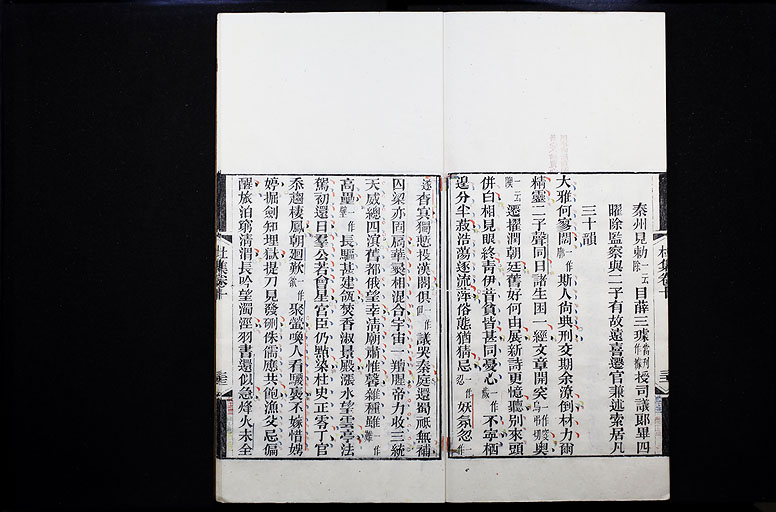 秦州見勅一云除目薛三璩當作據授司議郎畢四
曜除監察與二子有故遠喜遷官兼述索居凡
三十韻
大雅何寥闊一作廓斯人尚典刑交期余潦倒材力爾
精靈二子聲同日諸生困一經文章開窔一作突奧
遷擢潤朝廷舊好何由展新詩更憶聽別來頭
併白相見眼終青伊昔貧皆甚同憂心一作歲不寧栖
遑分半菽浩蕩逐流萍俗態猶猜忌一作忍妖氛忽一作
逐杳冥獨慙投漢閣俱一作但議哭秦庭還蜀祗無補
囚梁亦固扃華夷相混合宇宙一羶腥帝力收三統
天威總四溟舊都俄望幸清廟肅惟馨雜種雖一作難
高壘一作壁長驅甚建瓴焚香淑景殿漲水望雲亭法
駕初還日羣公若會星宮臣仍點染柱史正零丁官
忝趨棲鳳朝迴歎一作欲聚螢喚人看騕褭不嫁惜娉
婷掘劍知埋獄提刀見發硎侏儒應共飽漁父忌偏
醒旅泊窮清渭長吟望濁涇羽書還似急烽火未全
杜集卷十